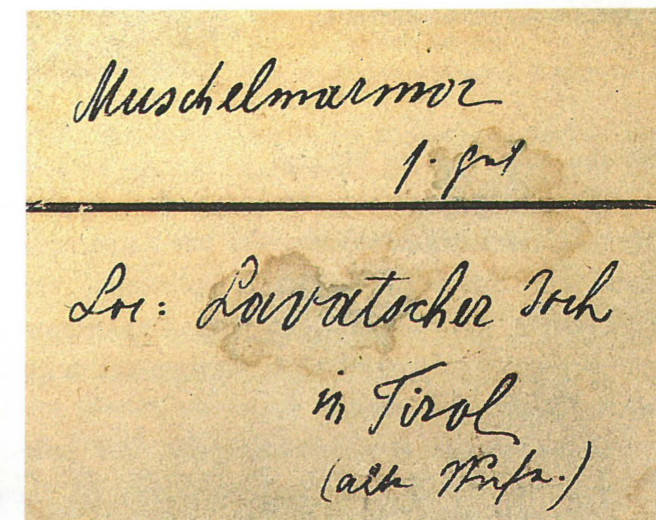 Muschelmarmor
s. gut
Loc: Lavatscher Joch
in Tirol
(alte